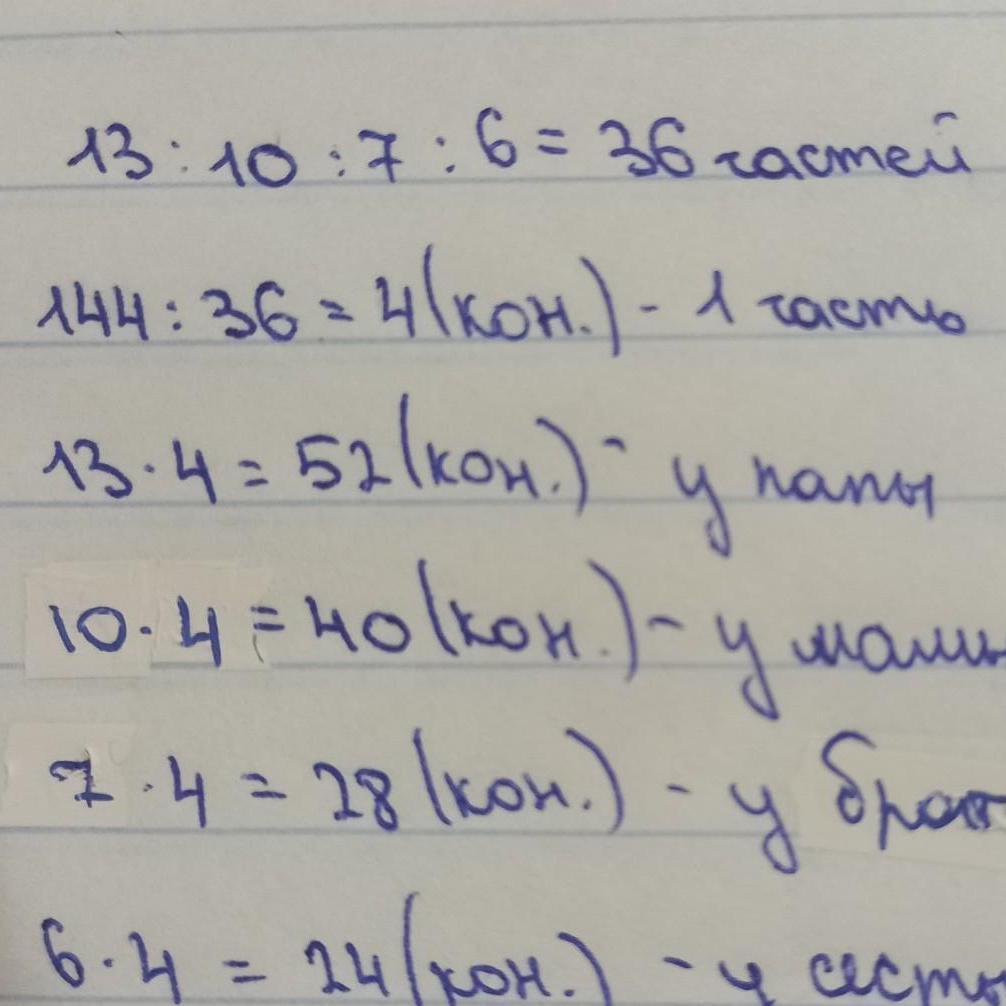 13 : 10 : 7 : 6 = 36 частей
144 : 36 = 4 (кон.) - 1 часть
13 · 4 = 52 (кон.) - у папы
10 · 4 = 40 (кон.) - у мамы
7 · 4 = 28 (кон.) - у брат
6 · 4 = 24 (кон.) - у сест